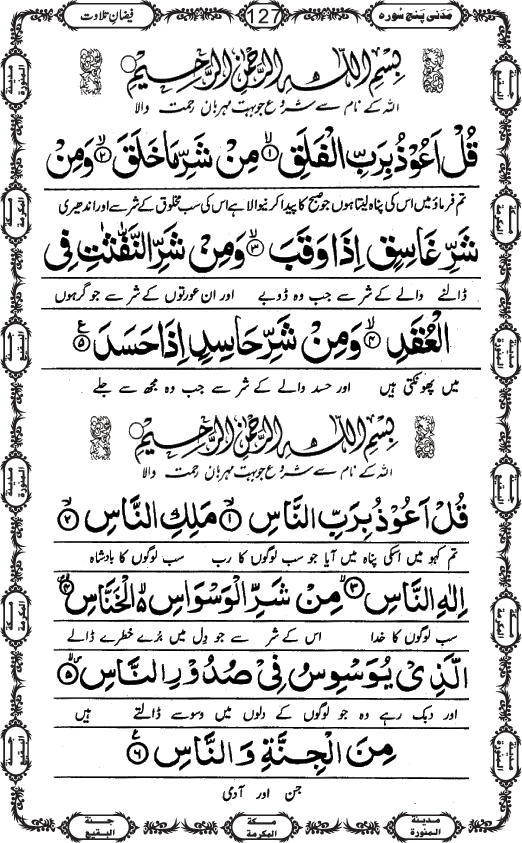 مَدَنی پَنج سُورہ
127
فیضانِ تلاوت
بِسْمِ اللّٰهِ الرَّحْمٰنِ الرَّحِیْمِ
اللہ کے نام سے شروع جو بہت مہربان رحمت والا
قُلْ اَعُوْذُ بِرَبِّ الْفَلَقِ ۙ﴿۱﴾ مِنْ شَرِّ مَا خَلَقَ ۙ﴿۲﴾ وَ مِنْ
تم فرماؤ میں اس کی پناہ لیتا ہوں جو صبح کا پیدا کرنیوالا ہے اس کی سب مخلوق کے شر سے اور اندھیری
شَرِّ غَاسِقٍ اِذَا وَقَبَ ۙ﴿۳﴾ وَ مِنْ شَرِّ النَّفّٰثٰتِ فِی
ڈالنے والے کے شر سے جب وہ ڈوبے اور ان عورتوں کے شر سے جو گرہوں
الْعُقَدِ ۙ﴿۴﴾ وَ مِنْ شَرِّ حَاسِدٍ اِذَا حَسَدَ ﴿۵﴾ ع
میں پھونکتی ہیں اور حسد والے کے شر سے جب وہ مجھ سے جلے
بِسْمِ اللّٰهِ الرَّحْمٰنِ الرَّحِیْمِ
اللہ کے نام سے شروع جو بہت مہربان رحمت والا
قُلْ اَعُوْذُ بِرَبِّ النَّاسِ ۙ﴿۱﴾ مَلِكِ النَّاسِ ۙ﴿۲﴾
تم کہو میں اسکی پناہ میں آیا جو سب لوگوں کا رب سب لوگوں کا بادشاہ
اِلٰهِ النَّاسِ ۙ﴿۳﴾ مِنْ شَرِّ الْوَسْوَاسِ ۙ۬ الْخَنَّاسِ ۪ۙ﴿۴﴾
سب لوگوں کا خدا اس کے شر سے جو دل میں بُرے خطرے ڈالے
الَّذِیْ یُوَسْوِسُ فِیْ صُدُوْرِ النَّاسِ ۙ﴿۵﴾
اور دبک رہے وہ جو لوگوں کے دلوں میں وسوسے ڈالتے ہیں
مِنَ الْجِنَّةِ وَ النَّاسِ ﴿۶﴾ ع
جن اور آدمی
مدینۃ المنورۃ
جنۃ البقیع
مکۃ المکرمۃ
مکۃ المکرمۃ
جنۃ البقیع
مدینۃ المنورۃ
مدینۃ المنورۃ
جنۃ البقیع
مکۃ المکرمۃ
مکۃ المکرمۃ
جنۃ البقیع
مدینۃ المنورۃ
جنۃ البقیع
مکۃ المکرمۃ
مدینۃ المنورۃ